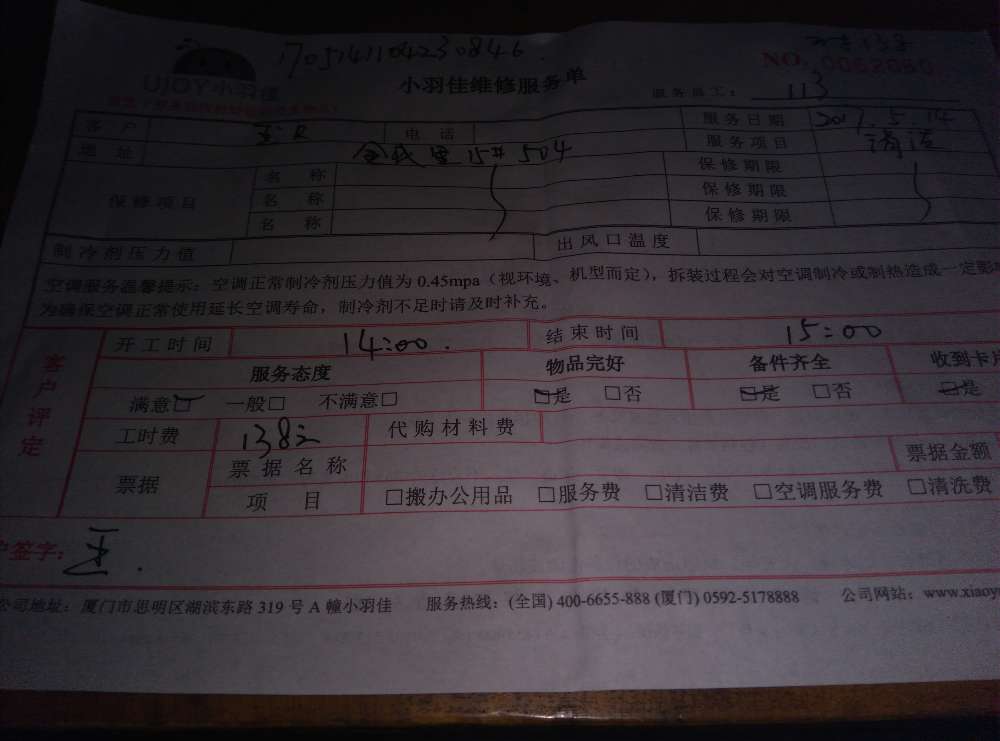 1705141104230846
UJOY小羽佳
小羽佳维修服务单
NO. 0062080
服务员工: 113
客户 电话 服务日期 2017.5.14
地址 15# 504 服务项目 清洁
保修项目 名称 保修期限
名称 保修期限
名称 保修期限
制冷剂压力值 出风口温度
空调服务温馨提示: 空调正常制冷剂压力值为 0.45mpa（视环境、机型而定），拆装过程会对空调制冷或制热造成一定影
为确保空调正常使用延长空调寿命，制冷剂不足时请及时补充。
客户评定
开工时间 14:00. 结束时间 15:00
服务态度 物品完好 备件齐全 收到卡片
满意☑ 一般□ 不满意□ ☑是 □否 ☑是 □否 ☑是
工时费 138元 代购材料费
票据 票据名称 票据金额
项目 □搬办公用品 □服务费 □清洁费 □空调服务费 □清洗费
户签字: 王.
公司地址: 厦门市思明区湖滨东路 319 号 A 幢小羽佳 服务热线: (全国) 400-6655-888 (厦门) 0592-5178888 公司网站: www.xiaoyu